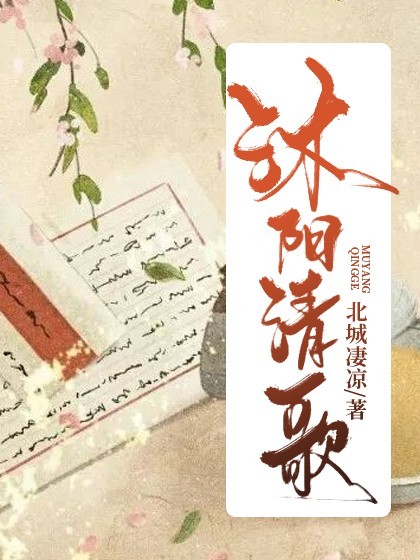 沐阳清歌
MUYANG
QINGGE
北城凄凉/著